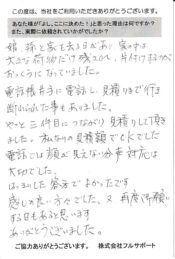 この度は、当社をご利用いただきありがとうございます。
あなた様が「よし、ここに決めた！」と思った理由は何ですか？
また、実際に依頼されていかがでしたか？
大きな荷物だけ残され、片付けるのが
おっくうになっていました。
電話帳片手に電話し、見積りまで行き
断られた事もありました。
やっと三件目につながり見積りして頂き
ました。私なりの見積額でOKでした
電話では顔が見えない分声対応は
大切でした。
はきはきした答えでよかったです
感じの良い方々でした。又再度お願い
する日もあると思います
ありがとうございました。
ご協力ありがとうございます。 株式会社フルサポート